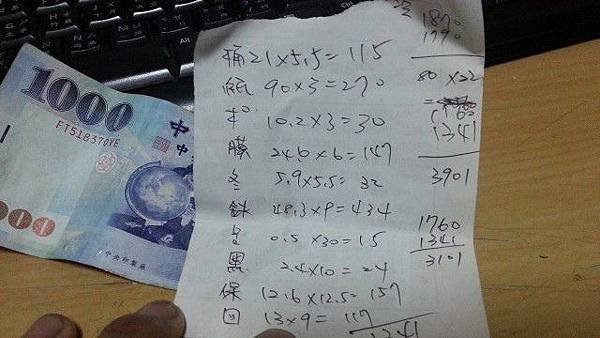 1000
FT518370VE
中
中央印製廠
000
桶 21×5.5=115
紙 90×3=270
10.2×3=30
膜 24.6×6=147
冬 5.9×5.5=32
鉄 48.3×9=434
0.5×30=15
黑 2.4×10=24
保 12.6×12.5=157
回 13×9=117
1341
空 1870
1790
80×22
=1760
1341
3901
1760
1341
3101